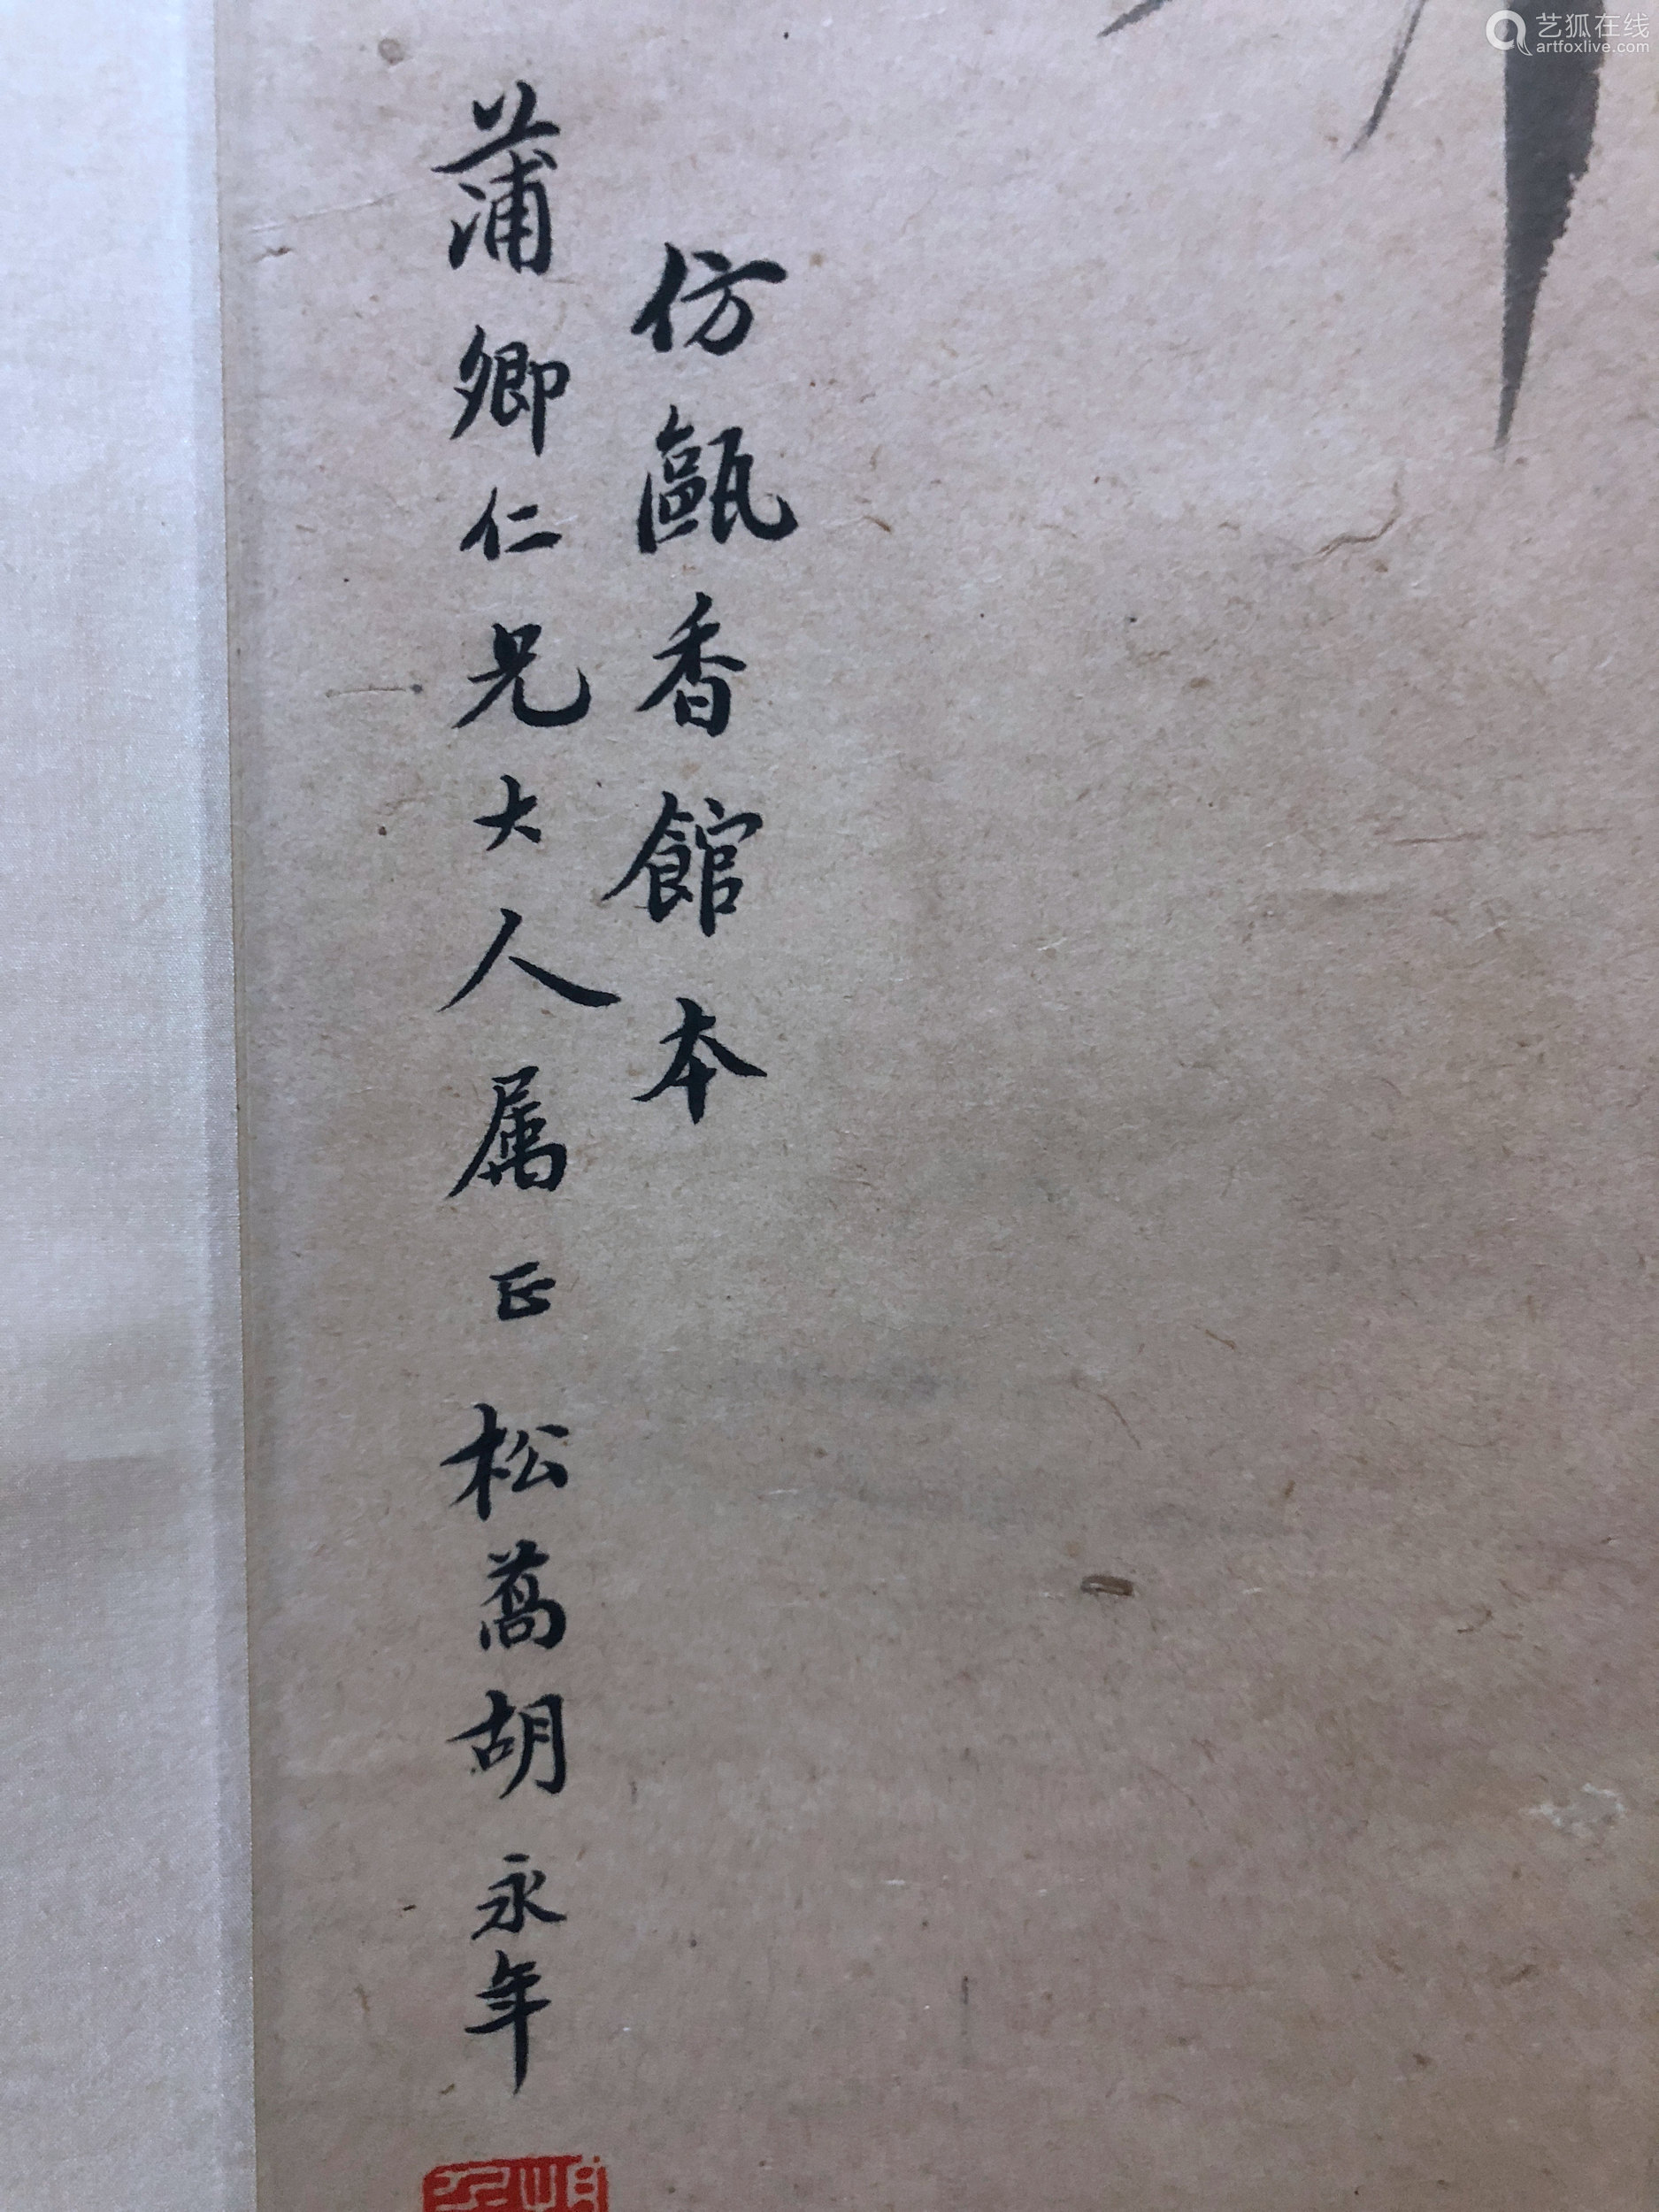 仿甌香館本
蒲卿仁兄大人属正松蒿胡永年
艺狐在线
artfoxlive.com